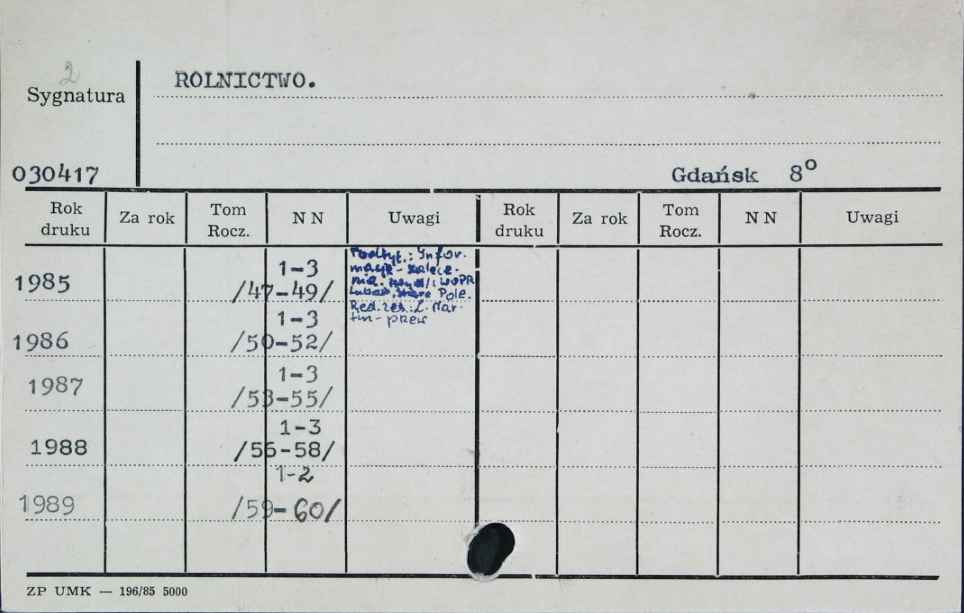 2
ROLNICTWO.
Sygnatura
030417
Gdańsk 8°
Rok druku Za rok Tom Rocz. N N Uwagi Rok druku Za rok Tom Rocz. N N Uwagi
Podtyt.: Infor-
macje - zalece-
nia.
1985 1-3
/47-49/
Pole.
Red. zes.: L. Mar-
tin-
1-3
1986 /50-52/
1-3
1987 /53-55/
1-3
1988 /56-58/
1-2
1989 /59-60/
ZP UMK — 196/85 5000